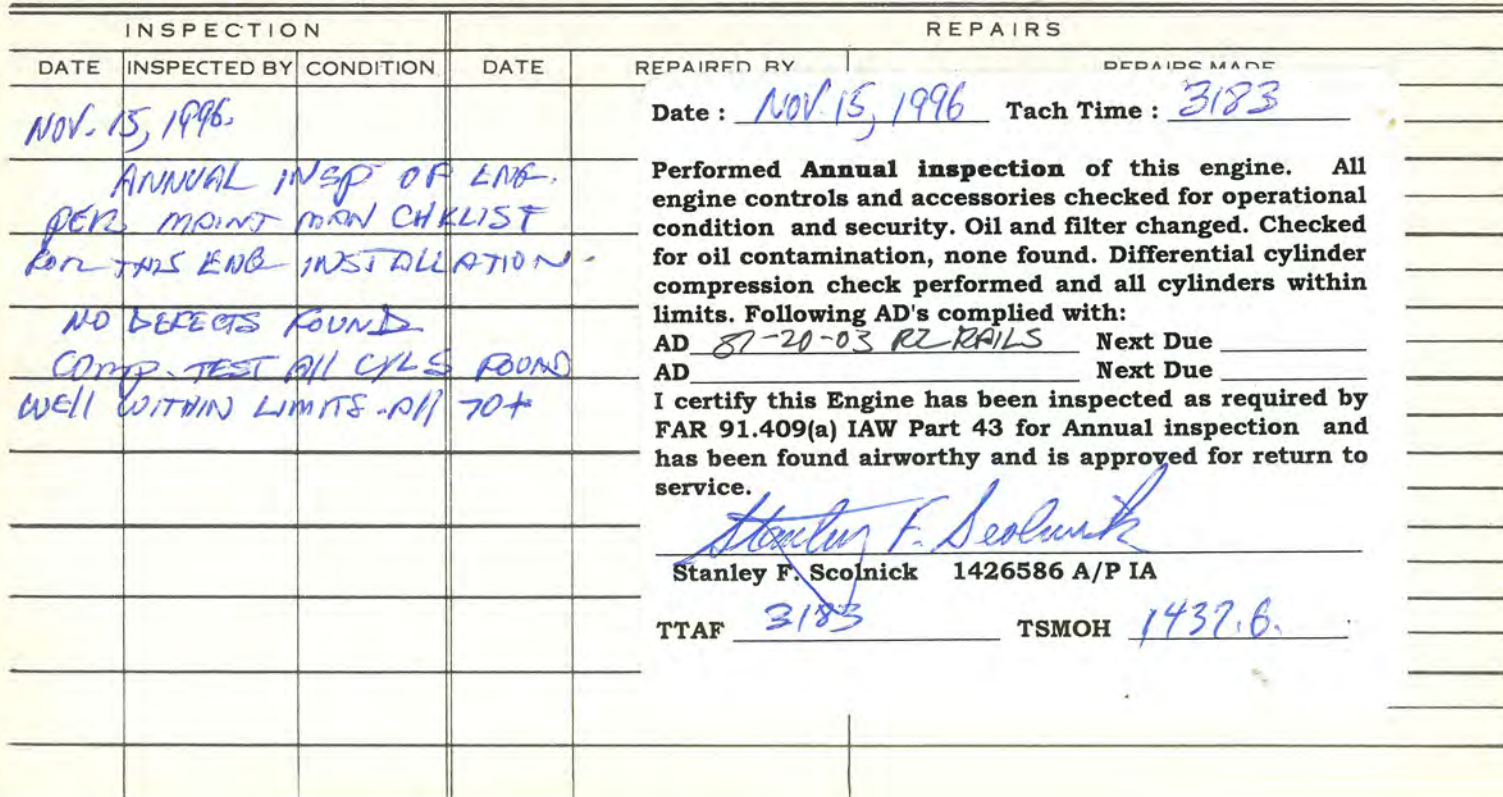 INSPECTION
REPAIRS
DATE INSPECTED BY CONDITION DATE REPAIRED BY REPAIRS MADE
NOV. 15, 1996.
ANNUAL INSP OF ENG.
PER MAINT MAN CHKLIST
FOR THIS ENG INSTALLATION.
NO DEFECTS FOUND
COMP. TEST All CYLS FOUND
WEll WITHIN LIMITS. All 70+
Date : NOV. 15, 1996 Tach Time : 3183
Performed Annual inspection of this engine. All
engine controls and accessories checked for operational
condition and security. Oil and filter changed. Checked
for oil contamination, none found. Differential cylinder
compression check performed and all cylinders within
limits. Following AD's complied with:
AD 87-20-03 RAILS Next Due
AD Next Due
I certify this Engine has been inspected as required by
FAR 91.409(a) IAW Part 43 for Annual inspection and
has been found airworthy and is approved for return to
service.
Stanley F. Scolnick
Stanley F. Scolnick 1426586 A/P IA
TTAF 3183 TSMOH 1437.6.